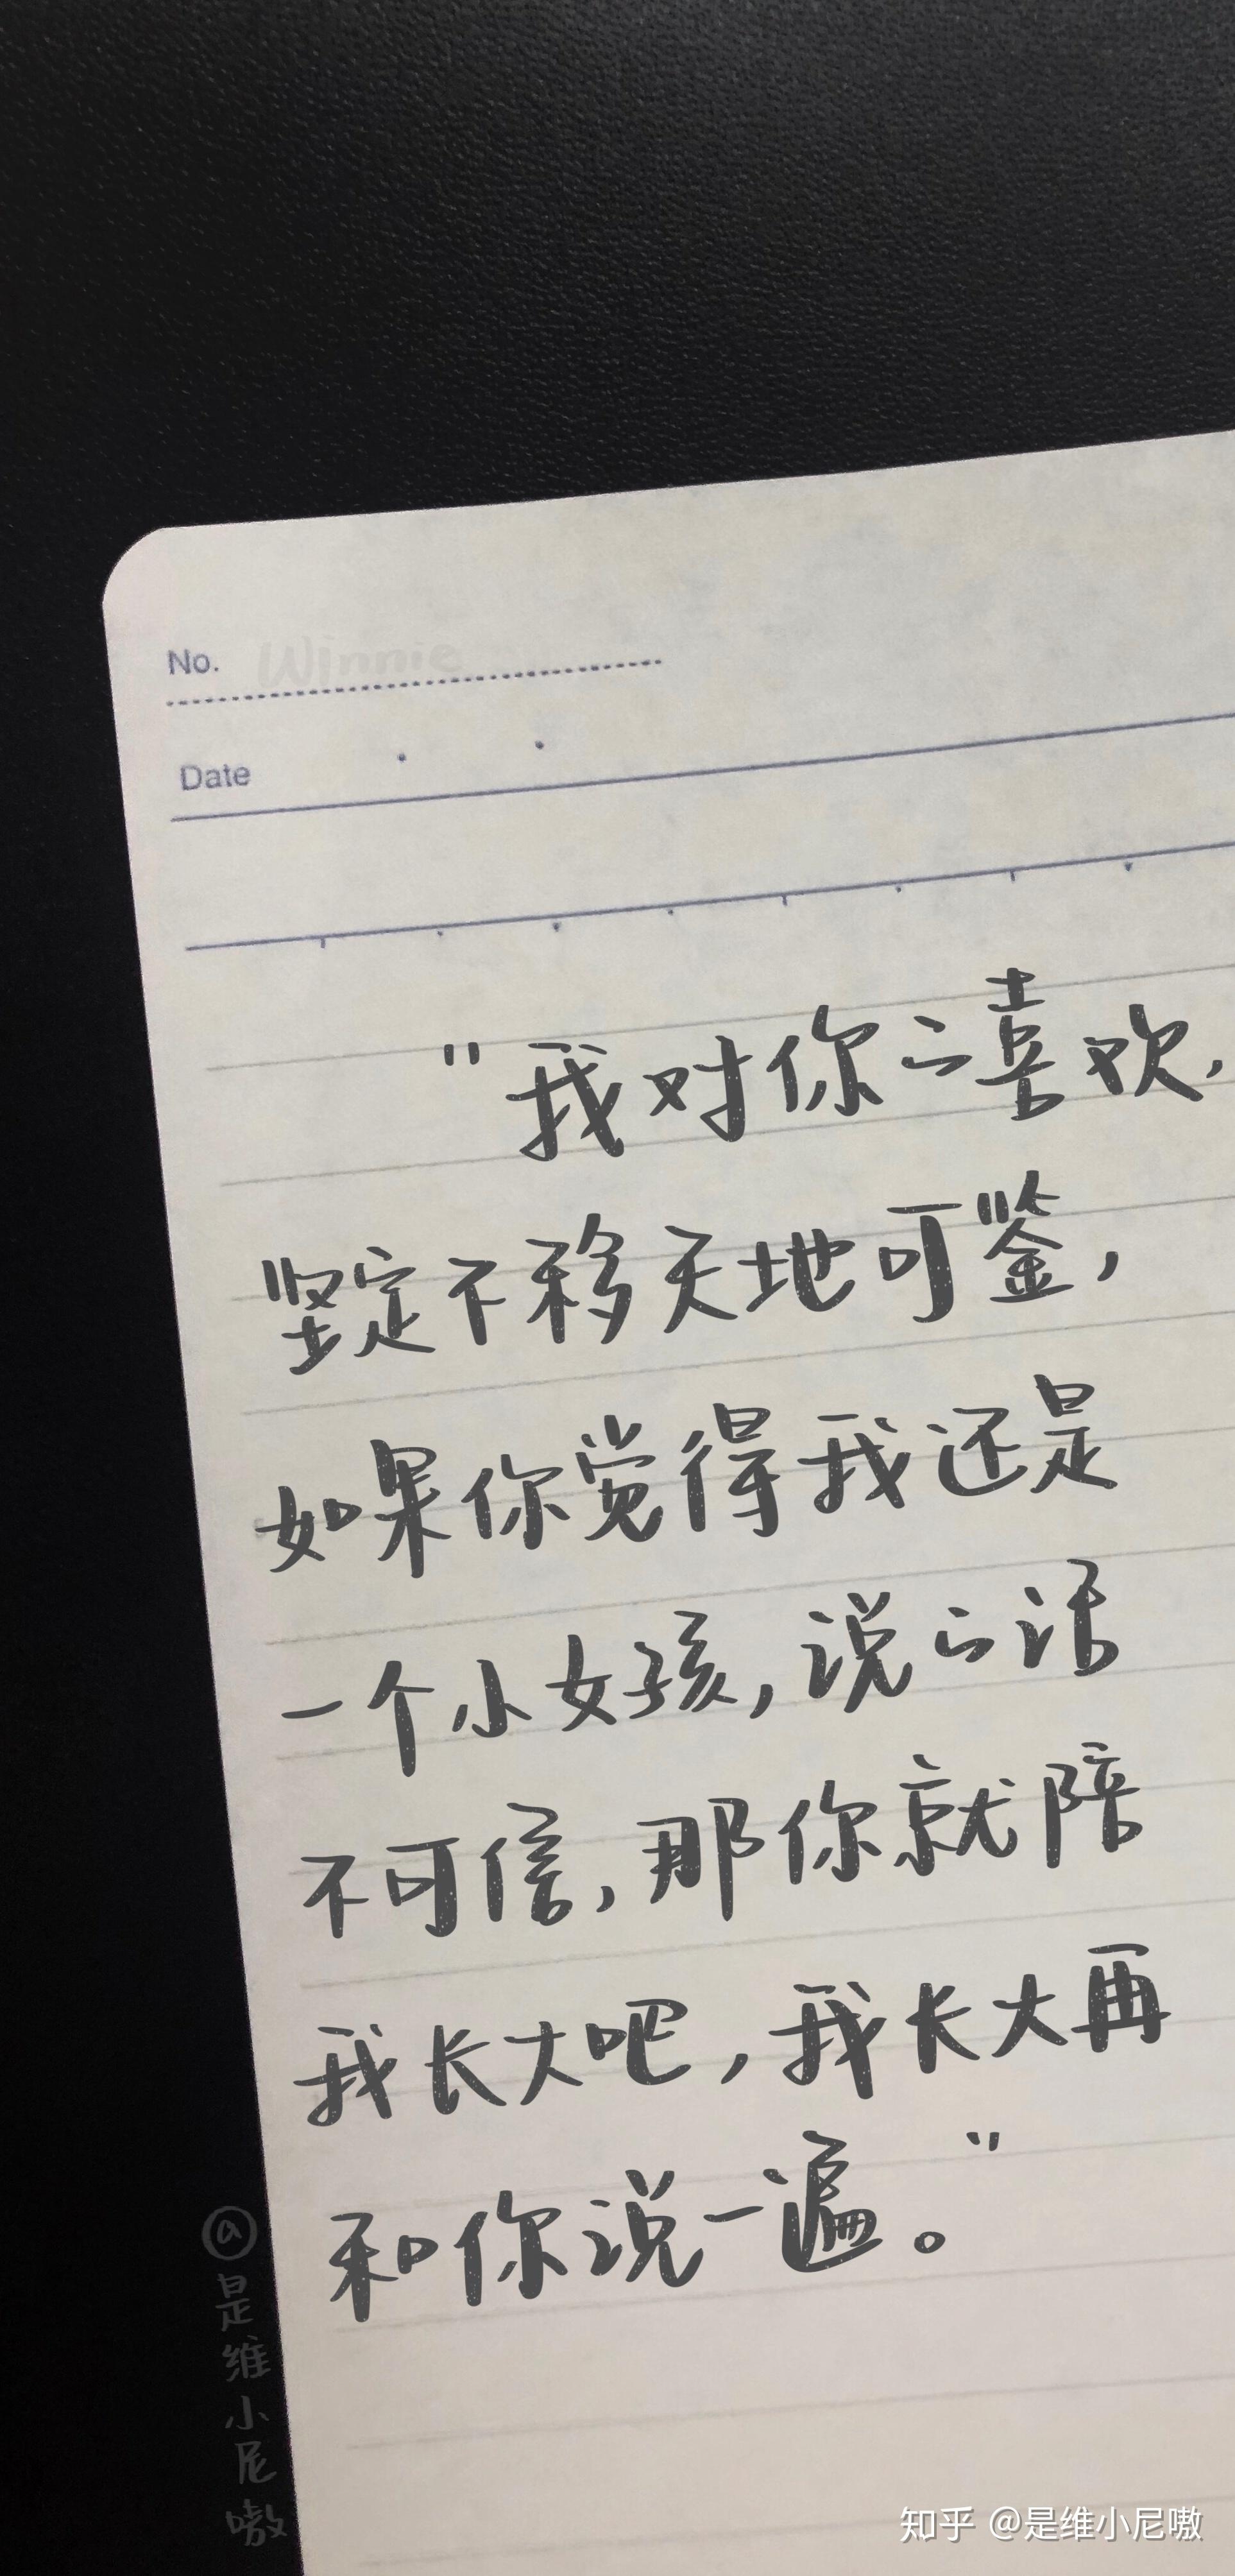 No. Winnie
Date
"我对你的喜欢,
坚定不移天地可鉴,
如果你觉得我还是
一个小女孩,说的话
不可信,那你就陪
我长大吧,我长大再
和你说一遍。"
@是维小尼嗷
知乎 @是维小尼嗷